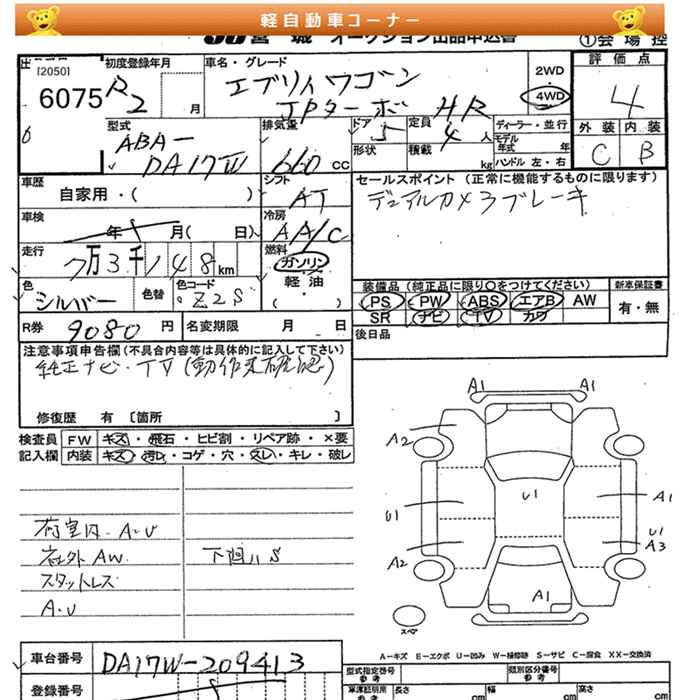 軽自動車コーナー
JU宮城 オークション出品申込書
①会場控
[2050]
6075
初度登録年月
R2 月
車名・グレード
エブリイワゴン
JPターボ HR
2WD
4WD
評価点
4
外装 内装
C B
型式
ABA-
DA17W
排気量
660 CC
ドア
5
形状
定員
4 人
積載 kg
ディーラー・並行
モデル
年式 年
ハンドル 左・右
車歴
自家用・( )
シフト
AT
セールスポイント (正常に機能するものに限ります)
デュアルカメラブレーキ
車検
年 月( 日)
冷房
AA/C
走行
7万3千148km
燃料
ガソリン
軽油
( )
色
シルバー
色替
色コード
Z2S
装備品 (純正品に限り〇をつけてください)
新車保証書
PS PW ABS エアB AW
SR ナビ TV カワ
有・無
R券 9080 円 名変期限 月 日
後日品
注意事項申告欄(不具合内容等は具体的に記入して下さい)
純正ナビ・TV(動作未確認)
修復歴 有〔箇所 〕
検査員
記入欄
FW キズ・飛石・ヒビ割・リペア跡・×要
内装 キズ・汚れ・コゲ・穴・スレ・キレ・破レ
荷室内 A.U
社外AW 下回りS
スタットレス
A.U
A1 A1
A2
U1
U1
A1
U1
A2
A3
A1
スペア
A-キズ E-エクボ U-凹み W-補修跡 S-サビ C-腐食 XX-交換済
車台番号 DA17W-209413
登録番号
型式指定番号
参考
類別区分番号
参考
車庫証明用
参考
長さ cm 幅 cm 高さ cm